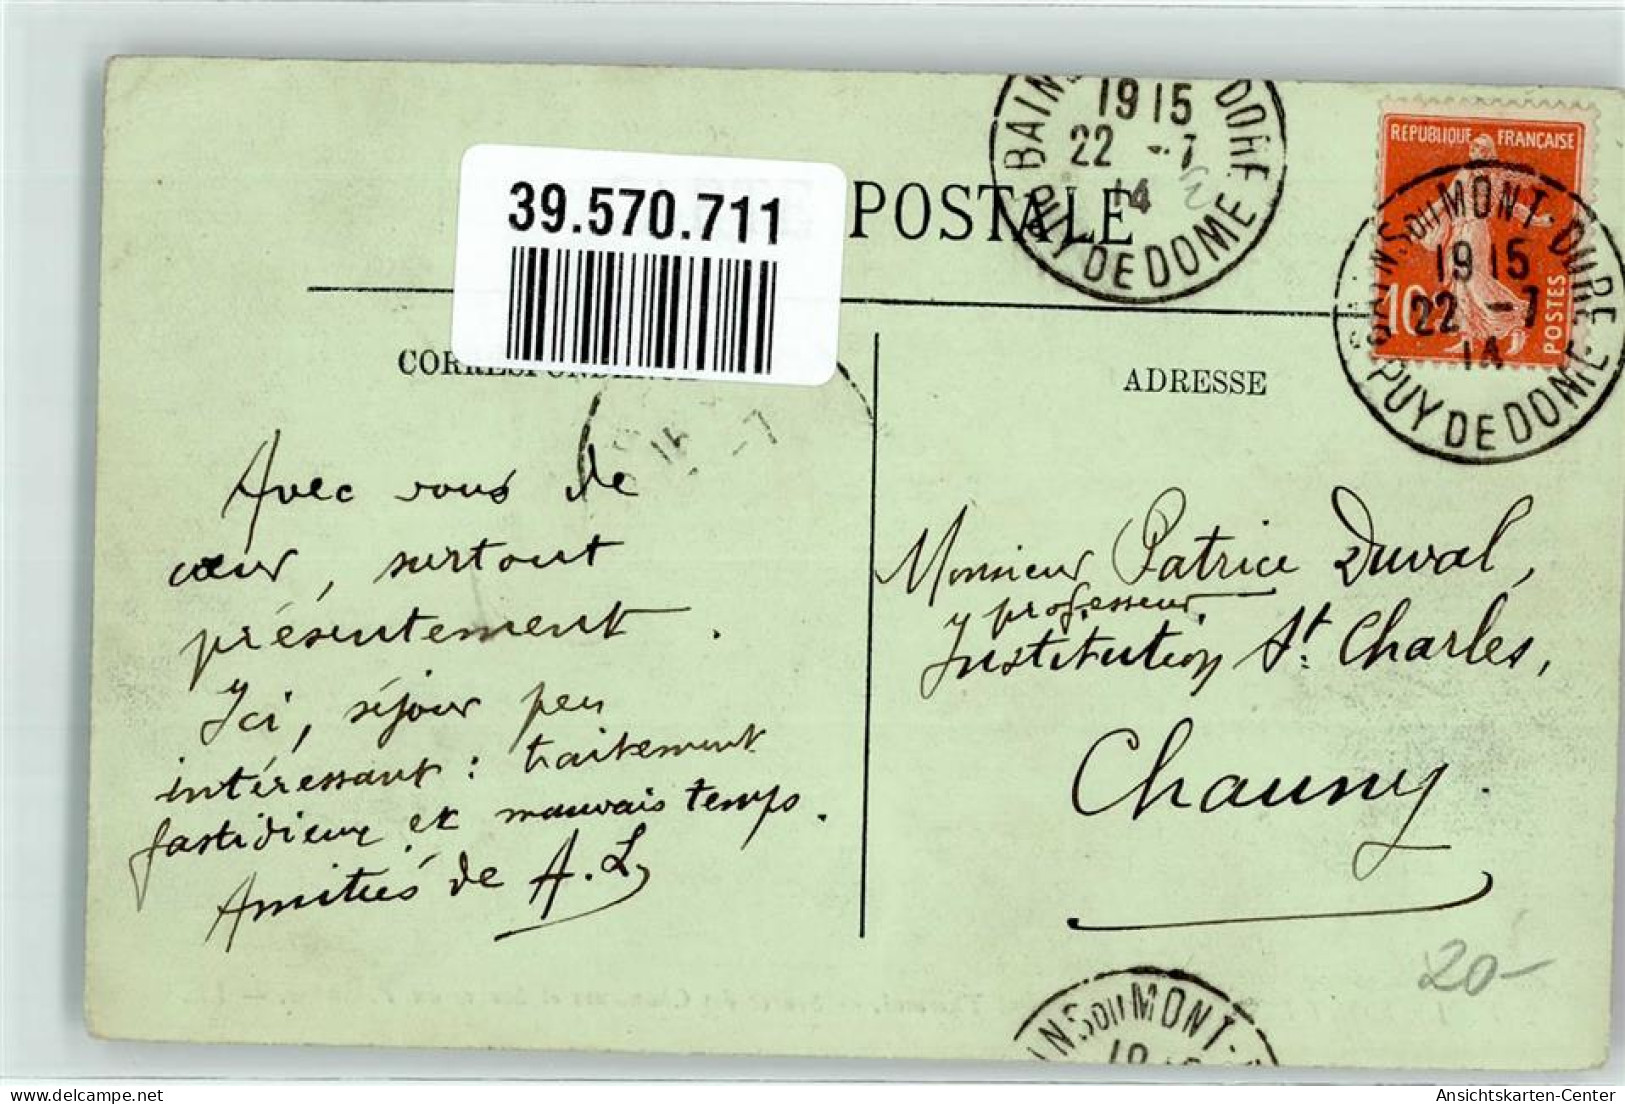 39.570.711
POSTALE
BAINS DU MONT-DORE
1915
22 -7
14
PUY DE DOME
REPUBLIQUE FRANÇAISE
10
POSTES
BAINS DU MONT-DORE
1915
22 -7
14
PUY DE DOME
CORRESPONDANCE
ADRESSE
15
-7
Avec vous de
cœur, surtout
présentement.
Ici, séjour peu
intéressant : traitement
fastidieux et mauvais temps.
Amitiés de A.L
Monsieur Patrice Duval,
professeur
Institution St. Charles,
Chauny.
20-
BAINS DU MONT-
Ansichtskarten-Center